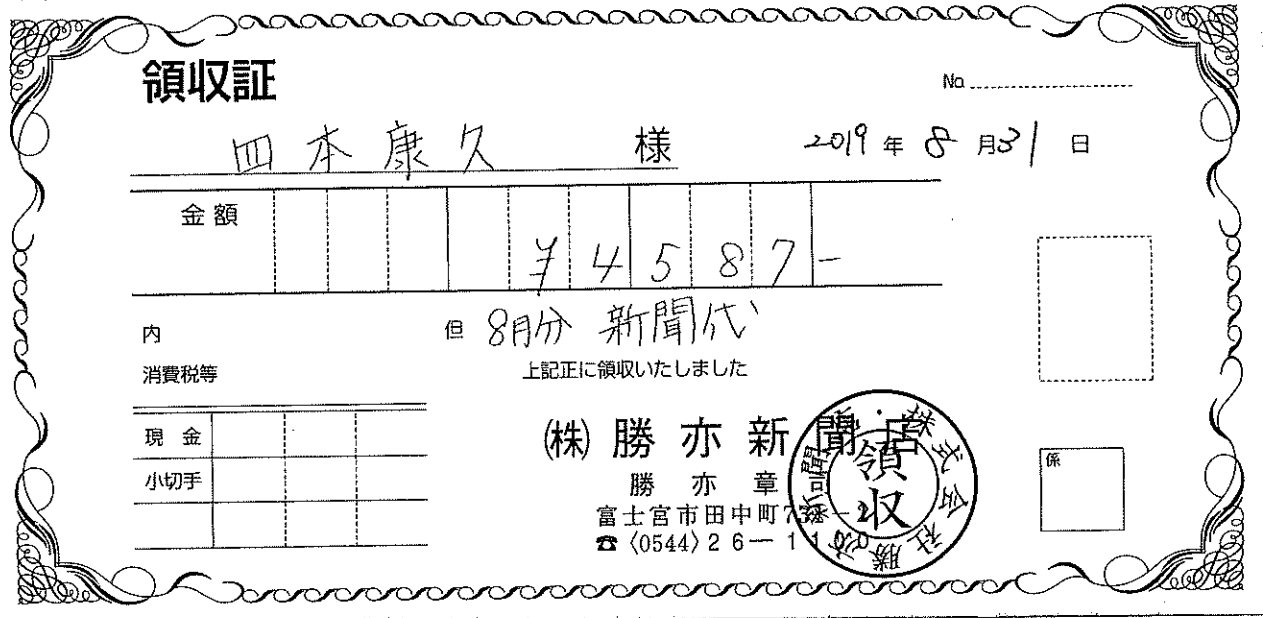 領収証
No.
四本康久 様
2019年8月31日
金額
¥4587-
内
但 8月分 新聞代
消費税等
上記正に領収いたしました
現金
小切手
係
(株)勝亦新聞店
勝亦章
富士宮市田中町
☎〈0544〉26―1100
株式会社勝亦新聞店・
領収